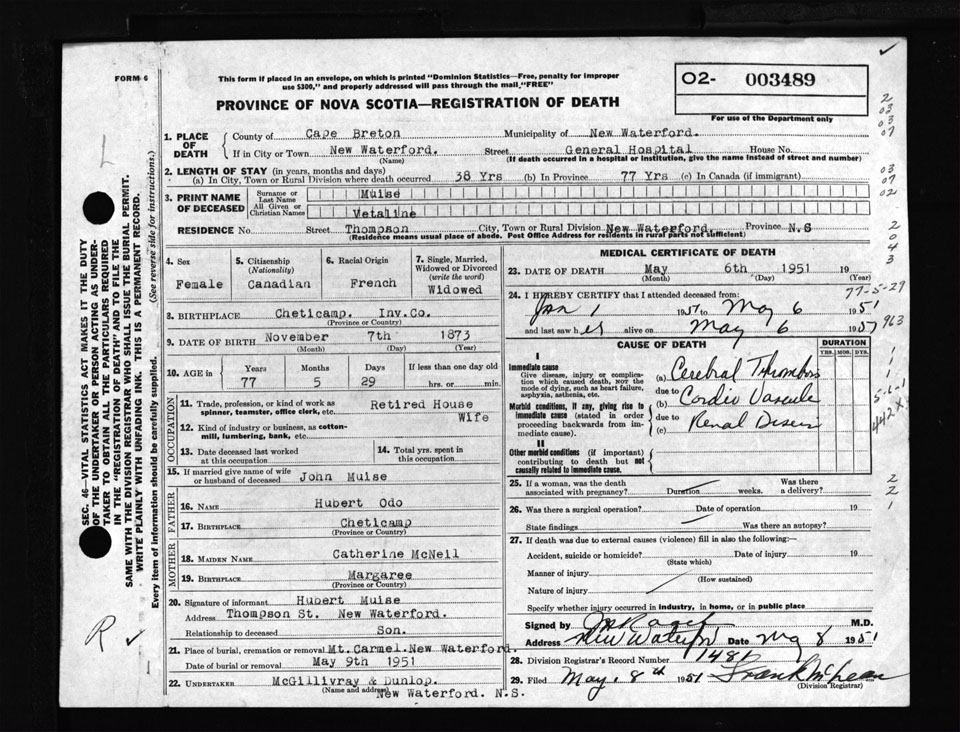 FORM 6
This form if placed in an envelope, on which is printed "Dominion Statistics—Free, penalty for improper
use $300," and properly addressed will pass through the mail "FREE"
PROVINCE OF NOVA SCOTIA—REGISTRATION OF DEATH
O2- 003489
For use of the Department only
1. PLACE OF DEATH
County of Cape Breton Municipality of New Waterford.
If in City or Town New Waterford. Street General Hospital House No.
(Name) (If death occurred in a hospital or institution, give the name instead of street and number)
2. LENGTH OF STAY (in years, months and days)
(a) In City, Town or Rural Division where death occurred 38 Yrs (b) In Province 77 Yrs (c) In Canada (if immigrant)
3. PRINT NAME OF DECEASED
Surname or Last Name Muise
All Given or Christian Names Vetaline
RESIDENCE No. Street Thompson City, Town or Rural Division New Waterford. Province N.S
(Residence means usual place of abode. Post Office Address for residents in rural parts not sufficient)
4. Sex Female
5. Citizenship (Nationality) Canadian
6. Racial Origin French
7. Single, Married, Widowed or Divorced (write the word) Widowed
8. BIRTHPLACE Cheticamp. Inv.Co.
(Province or Country)
9. DATE OF BIRTH November 7th 1873
(Month) (Day) (Year)
10. AGE in Years Months Days If less than one day old
77 5 29 hrs. or min.
OCCUPATION
11. Trade, profession, or kind of work as spinner, teamster, office clerk, etc. Retired House Wife
12. Kind of industry or business, as cotton-mill, lumbering, bank, etc.
13. Date deceased last worked at this occupation
14. Total yrs. spent in this occupation
15. If married give name of wife or husband of deceased John Muise
FATHER
16. NAME Hubert Odo
17. BIRTHPLACE Cheticamp
(Province or Country)
MOTHER
18. MAIDEN NAME Catherine McNeil
19. BIRTHPLACE Margaree
(Province or Country)
20. Signature of informant Hubert Muise
Address Thompson St. New Waterford.
Relationship to deceased Son.
21. Place of burial, cremation or removal Mt. Carmel.New Waterford.
Date of burial or removal May 9th 1951
22. UNDERTAKER McGillivray & Dunlop.
(Name and address) New Waterford. N.S.
MEDICAL CERTIFICATE OF DEATH
23. DATE OF DEATH May 6th 1951 19
(Month) (Day) (Year)
77-5-29
24. I HEREBY CERTIFY that I attended deceased from:
Jan 1 1951 to May 6 1951
and last saw her alive on May 6 1951
963
CAUSE OF DEATH
DURATION
YRS. MOS. DYS.
I
Immediate cause
Give disease, injury or complication which caused death, NOT the mode of dying, such as heart failure, asphyxia, asthenia, etc.
(a) Cerebral Thrombosis
due to
Morbid conditions, if any, giving rise to immediate cause (stated in order proceeding backwards from immediate cause).
(b) Cardio Vascular
due to
(c) Renal Disease
442 X
II
Other morbid conditions (if important) contributing to death but not causally related to immediate cause.
25. If a woman, was the death associated with pregnancy? Duration weeks. Was there a delivery?
26. Was there a surgical operation? Date of operation 19
State findings Was there an autopsy?
27. If death was due to external causes (violence) fill in also the following:—
Accident, suicide or homicide? Date of injury 19
(State which)
Manner of injury
(How sustained)
Nature of injury
Specify whether injury occurred in industry, in home, or in public place
Signed by M.D.
Address New Waterford Date May 8 1951
28. Division Registrar's Record Number 1481
29. Filed May 8th 1951 Frank McLean
(Division Registrar)
SEC. 46—VITAL STATISTICS ACT MAKES IT THE DUTY
OF THE UNDERTAKER OR PERSON ACTING AS UNDER-
TAKER TO OBTAIN ALL THE PARTICULARS REQUIRED
IN THE "REGISTRATION OF DEATH" AND TO FILE THE
SAME WITH THE DIVISION REGISTRAR WHO SHALL ISSUE THE BURIAL PERMIT.
WRITE PLAINLY WITH UNFADING INK. THIS IS A PERMANENT RECORD.
Every item of information should be carefully supplied. (See reverse side for instructions.)
L
R
2
03
03
07
03
07
02
2
0
4
3
2
2
1